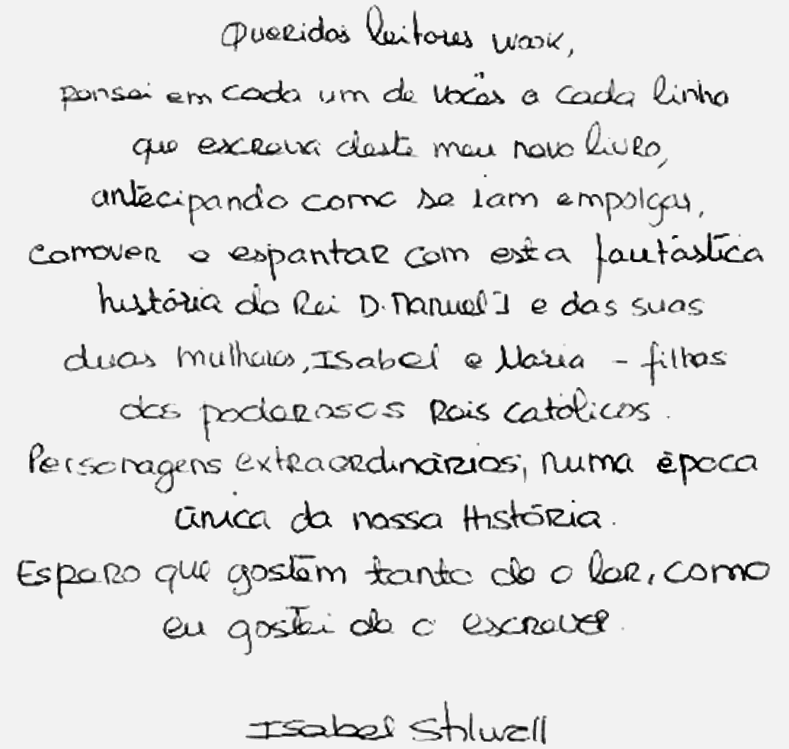 Queridos leitores wook,
pensei em cada um de vocês a cada linha
que escrevi deste meu novo livro,
antecipando como se iam empolgar,
comover e espantar com esta fantástica
história do Rei D. Manuel I e das suas
duas mulheres, Isabel e Maria - filhas
dos poderosos Reis Católicos.
Personagens extraordinárias, numa época
única da nossa História.
Espero que gostem tanto de o ler, como
eu gostei de o escrever.
Isabel Stilwell